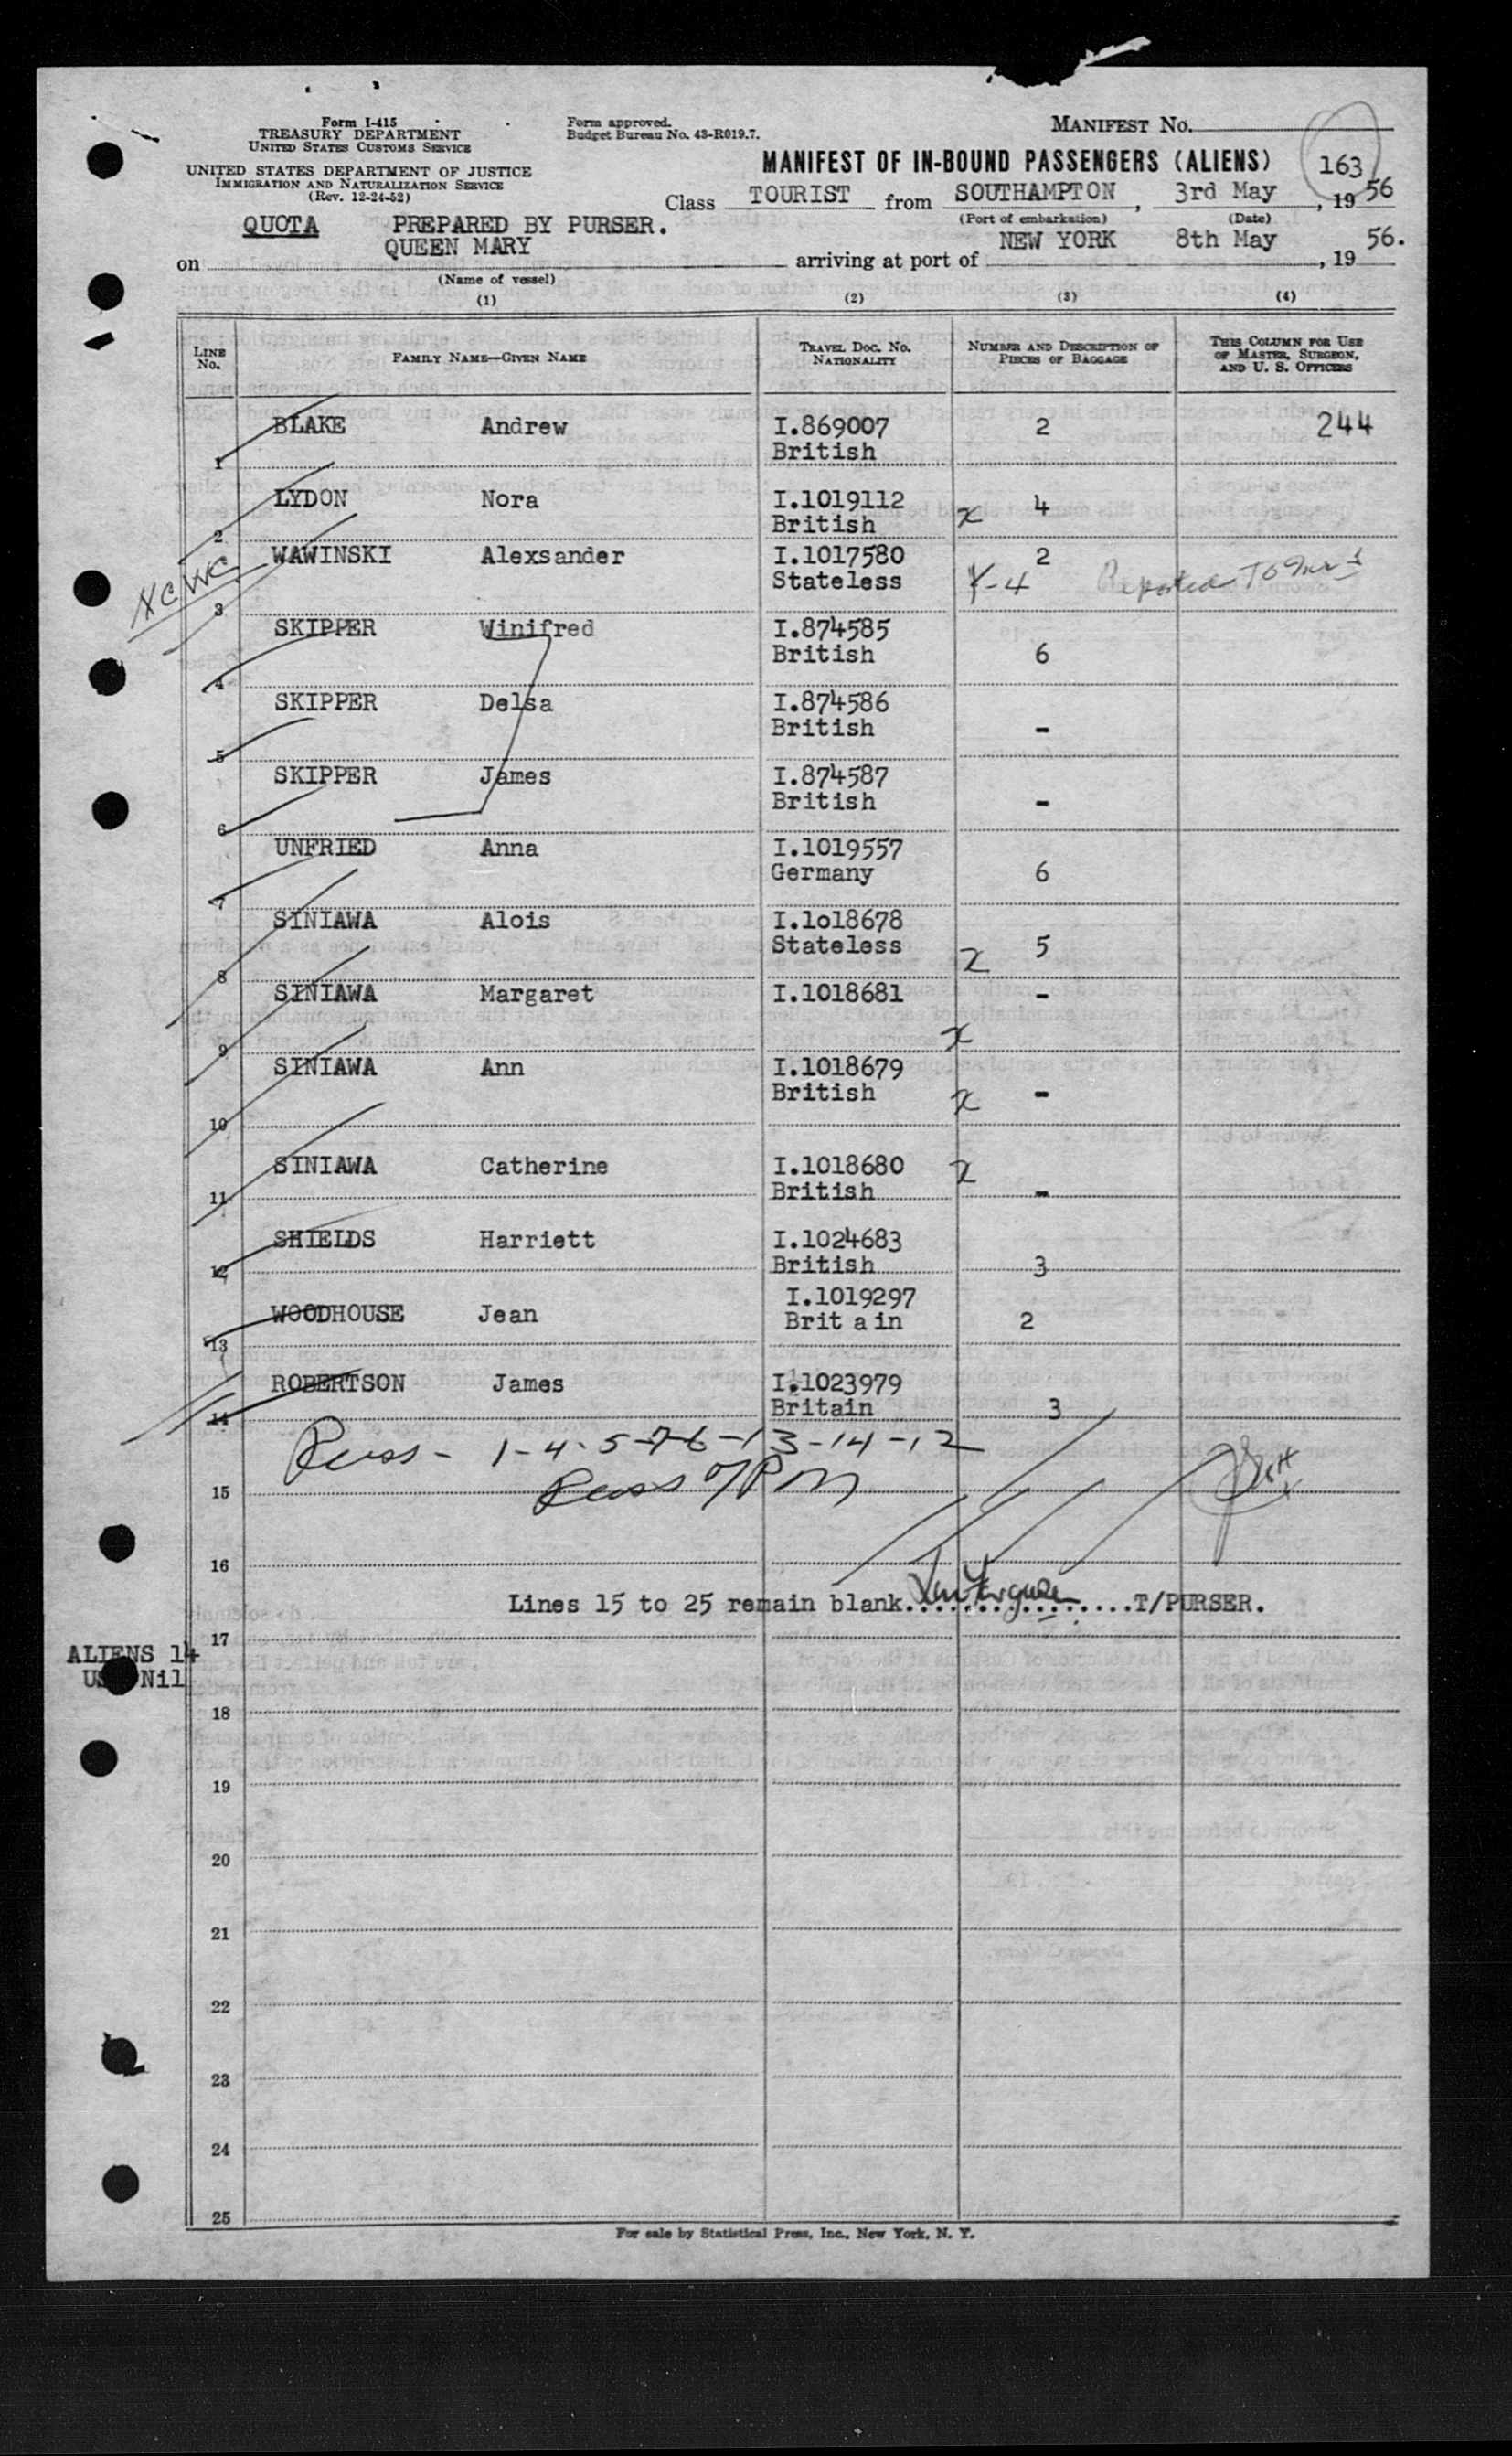 Form I-415
TREASURY DEPARTMENT
UNITED STATES CUSTOMS SERVICE
UNITED STATES DEPARTMENT OF JUSTICE
IMMIGRATION AND NATURALIZATION SERVICE
(Rev. 12-24-52)
Form approved.
Budget Bureau No. 43-R019.7.
MANIFEST No.
MANIFEST OF IN-BOUND PASSENGERS (ALIENS) 163
Class TOURIST from SOUTHAMPTON, 3rd May, 1956
(Port of embarkation) (Date)
QUOTA PREPARED BY PURSER.
on QUEEN MARY arriving at port of NEW YORK 8th May, 19 56.
(Name of vessel)
(1) (2) (3) (4)
LINE No. FAMILY NAME—GIVEN NAME TRAVEL DOC. NO. NATIONALITY NUMBER AND DESCRIPTION OF PIECES OF BAGGAGE THIS COLUMN FOR USE OF MASTER, SURGEON, AND U. S. OFFICERS
1 BLAKE Andrew I.869007 British 2 244
2 LYDON Nora I.1019112 British x 4
3 WAWINSKI Alexsander I.1017580 Stateless 2 Y-4
4 SKIPPER Winifred I.874585 British 6
5 SKIPPER Delsa I.874586 British -
6 SKIPPER James I.874587 British -
7 UNFRIED Anna I.1019557 Germany 6
8 SINIAWA Alois I.1o18678 Stateless x 5
9 SINIAWA Margaret I.1018681 x -
10 SINIAWA Ann I.1018679 British x -
11 SINIAWA Catherine I.1018680 British x -
12 SHIELDS Harriett I.1024683 British 3
13 WOODHOUSE Jean I.1019297 Brit a in 2
14 ROBERTSON James I.1023979 Britain 3
15
16
Lines 15 to 25 remain blank................T/PURSER.
ALIENS 14
Nil
17
18
19
20
21
22
23
24
25
For sale by Statistical Press, Inc., New York, N. Y.